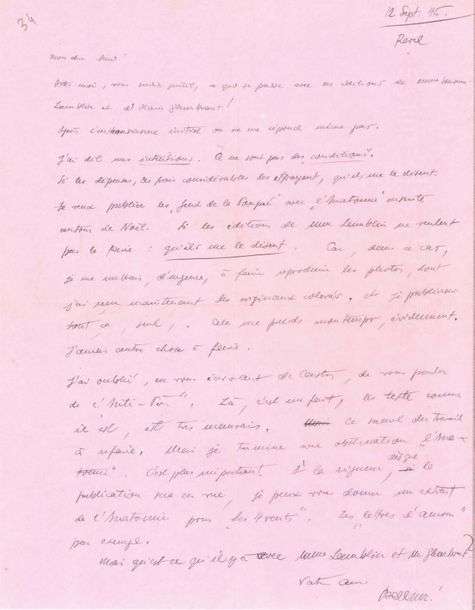 34
12 Sept. 45.
Revel
Mon cher ami!
moi, vous ce qui se passe avec les éditions de
Lamblin et d'Alain Gheerbrant!
Après l'enthousiasme initial on ne me répond même pas.
J'ai dit mes intentions. Ce ne sont pas des conditions.
Si les dépenses, les frais considérables les effrayent, qu'ils me le disent.
Je veux publier les Jeux de la Poupée avec l'Anatomie ensuite
autour de Noël. Si les éditions de Mme Lamblin ne veulent
pas le faire : qu'ils me le disent. Car, dans ce cas,
je me mettrais, d'urgence, à faire reproduire les photos, dont
j'ai ici maintenant les originaux coloriés. et je publierai
tout ça, seul. Cela me prends mon temps, évidemment.
J'aurais autre chose à faire.
J'ai oublié, en vous écrivant de Castres, de vous parler
de l'
Là, c'est un fait, le texte comme
il est, est très mauvais. ce travail
à refaire. Mais je termine mes observations l'Ana-
tomie" C'est plus important! Si la rigueur, exige la
publication en vue, je peux vous donner un extrait
de l'Anatomie pour "les 4 vents". Les "lettres d'amour"
par exemple.
Mais qu'est ce qu'il y a avec Mme Lamblin et Mr Gheerbrant?
Votre ami
Bellmer!